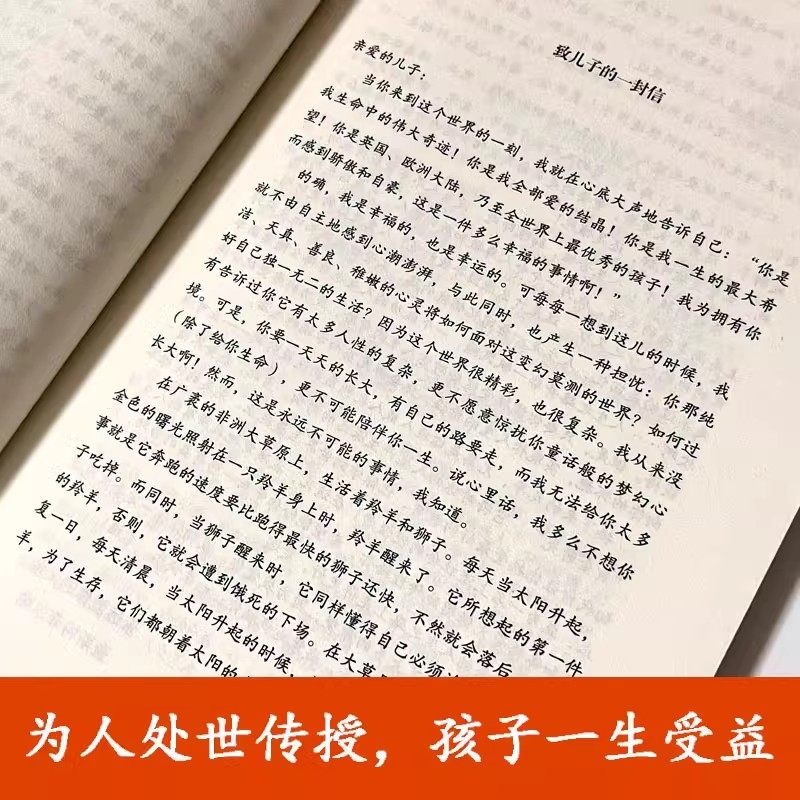 致儿子的一封信
亲爱的儿子：
当你来到这个世界的一刻，我就在心底大声地告诉自己：“你是
我生命中的伟大奇迹！你是我全部爱的结晶！你是我一生的最大希
望！你是英国、欧洲大陆，乃至全世界上最优秀的孩子！我为拥有你
而感到骄傲和自豪，这是一件多么幸福的事情啊！”
的确，我是幸福的，也是幸运的。可每每一想到这儿的时候，我
就不由自主地感到心潮澎湃，与此同时，也产生一种担忧：你那纯
洁、天真、善良、稚嫩的心灵将如何面对这变幻莫测的世界？如何过
好自己独一无二的生活？因为这个世界很精彩，也很复杂。我从来没
有告诉过你它有太多人性的复杂，更不愿意惊扰你童话般的梦幻心
境。可是，你要一天天的长大，有自己的路要走，而我无法给你太多
（除了给你生命），更不可能陪伴你一生。说心里话，我多么不想你
长大啊！然而，这是永远不可能的事情，我知道。
在广袤的非洲大草原上，生活着羚羊和狮子。每天当太阳升起，
金色的曙光照射在一只羚羊身上时，羚羊醒来了。它所想起的第一件
事就是它奔跑的速度要比跑得最快的狮子还快，不然就会落后
子吃掉。而同时，当狮子醒来时，它同样懂得自己必须
的羚羊，否则，它就会遭到饿死的下场。在大草
复一日，每天清晨，当太阳升起的时候，
羊，为了生存，它们都朝着太阳的
为人处世传授，孩子一生受益